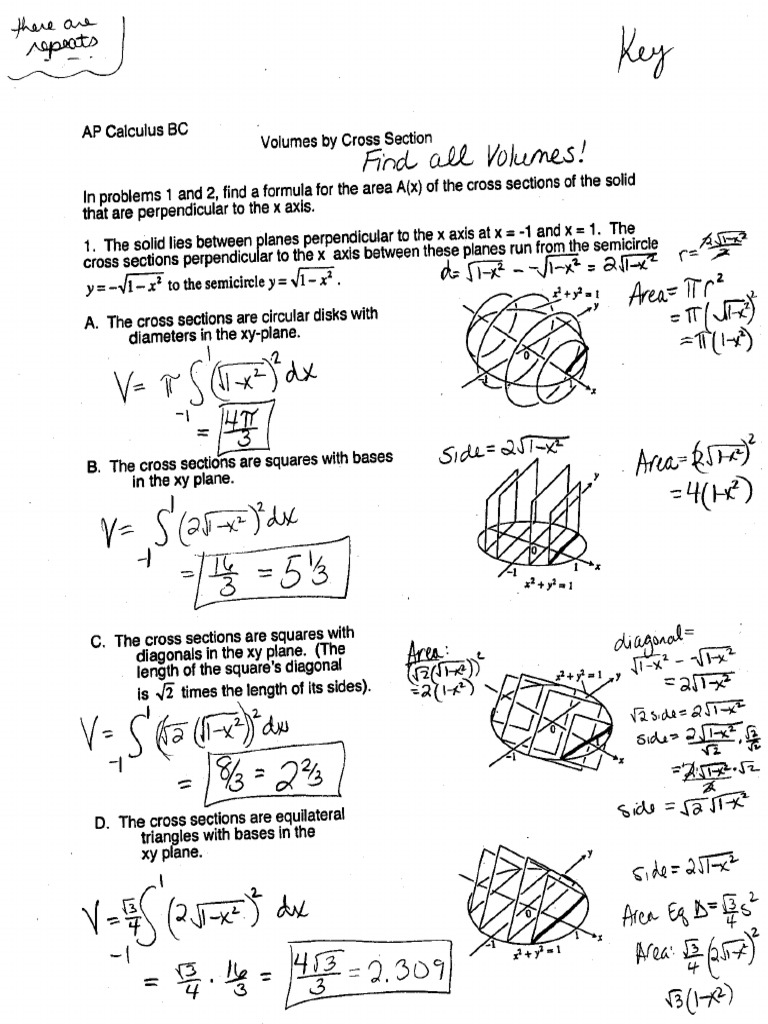 there are
repeats
Key
AP Calculus BC
Volumes by Cross Section
Find all Volumes!
In problems 1 and 2, find a formula for the area A(x) of the cross sections of the solid
that are perpendicular to the x axis.
1. The solid lies between planes perpendicular to the x axis at x = -1 and x = 1. The
cross sections perpendicular to the x axis between these planes run from the semicircle
y = -√1 - x² to the semicircle y = √1 - x² .
d = √1-x² - -√1-x² = 2√1-x²
r = 2√1-x²/2
Area = πr²
= π(√1-x²)²
= π(1-x²)
A. The cross sections are circular disks with
diameters in the xy-plane.
x² + y² = 1
y
0
-1
1
x
V = π ∫₋₁¹ (√1-x²)² dx
= 4π/3
B. The cross sections are squares with bases
in the xy plane.
side = 2√1-x²
Area = (2√1-x²)²
= 4(1-x²)
V = ∫₋₁¹ (2√1-x²)² dx
= 16/3 = 5 1/3
y
0
-1
1
x
x² + y² = 1
C. The cross sections are squares with
diagonals in the xy plane. (The
length of the square's diagonal
is √2 times the length of its sides).
Area:
(√2(√1-x²))²
= 2(1-x²)
diagonal =
√1-x² - -√1-x²
= 2√1-x²
√2 side = 2√1-x²
side = 2√1-x²/√2 · √2/√2
= 2√1-x² · √2/2
side = √2 √1-x²
x² + y² = 1
y
0
-1
1
x
V = ∫₋₁¹ (√2 (√1-x²))² dx
= 8/3 = 2 2/3
D. The cross sections are equilateral
triangles with bases in the
xy plane.
side = 2√1-x²
Area Eq Δ = √3/4 s²
Area: √3/4 (2√1-x²)²
√3(1-x²)
y
0
-1
1
x
x² + y² = 1
V = √3/4 ∫₋₁¹ (2√1-x²)² dx
= √3/4 · 16/3 = 4√3/3 = 2.309